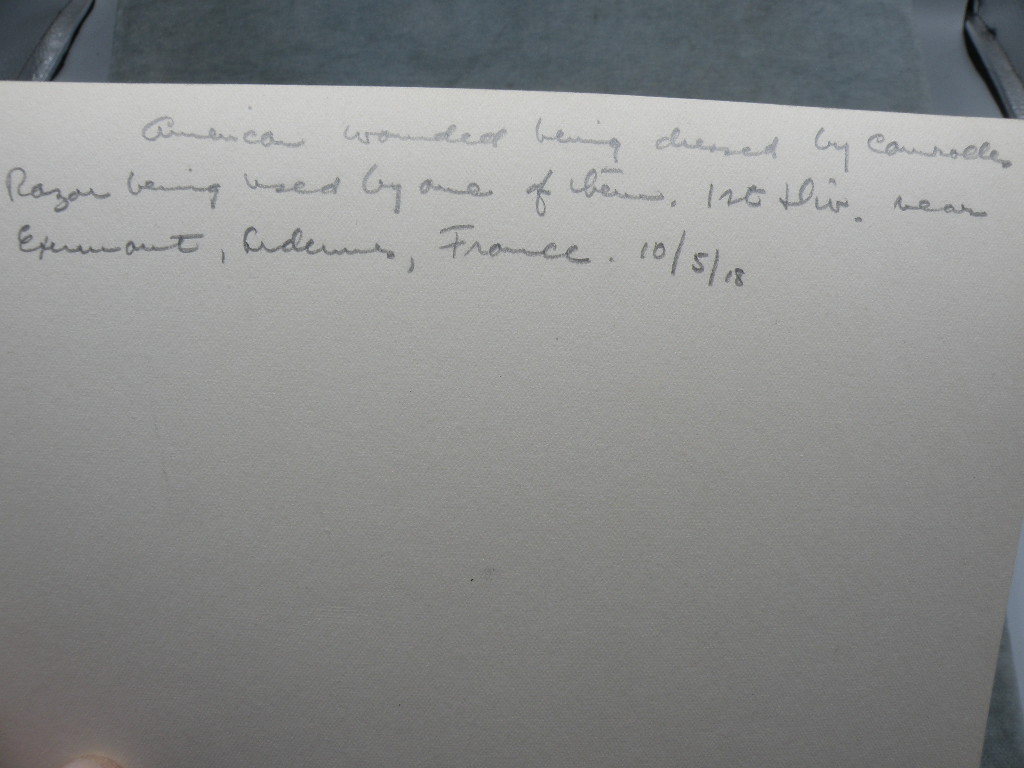 American wounded being dressed by Comrades
Razor being used by one of them. 1st Div. near
Exermont, Ardennes, France. 10/5/18